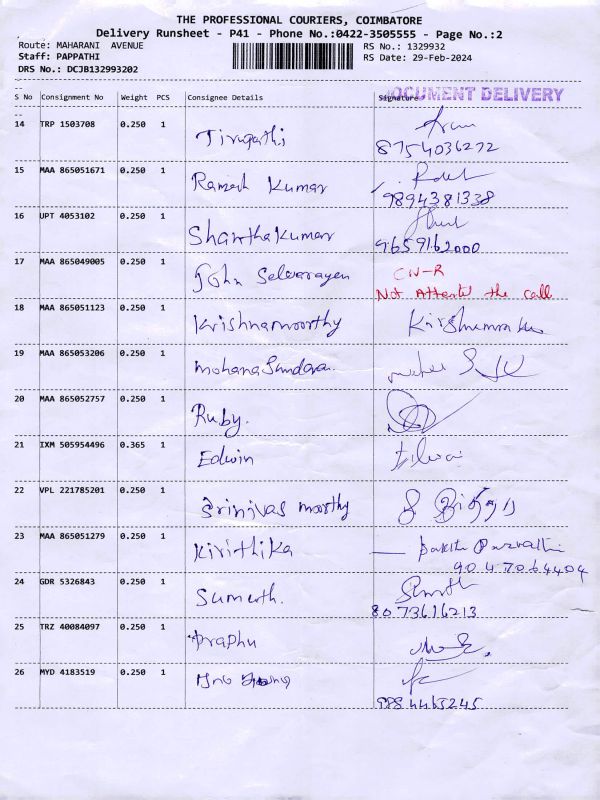 THE PROFESSIONAL COURIERS, COIMBATORE
Delivery Runsheet - P41 - Phone No.:0422-3505555 - Page No.:2
Route: MAHARANI AVENUE RS No.: 1329932
Staff: PAPPATHI RS Date: 29-Feb-2024
DRS No.: DCJB132993202
S No Consignment No Weight PCS Consignee Details Signature DOCUMENT DELIVERY
14 TRP 1503708 0.250 1 Tirupathi
8754036272
15 MAA 865051671 0.250 1 Ramesh Kumar
9894381338
16 UPT 4053102 0.250 1 Shanthakumar
9659162000
17 MAA 865049005 0.250 1 John Selvarayen CN-R
Not Attentd the call
18 MAA 865051123 0.250 1 Krishnamoorthy
19 MAA 865053206 0.250 1 Mohana Sundaram
20 MAA 865052757 0.250 1 Ruby.
21 IXM 505954496 0.365 1 Edwin
22 VPL 221785201 0.250 1 Srinivas moorthy
23 MAA 865051279 0.250 1 Kirithika Parvathi
9047064404
24 GDR 5326843 0.250 1 Sumeeth.
8073616213
25 TRZ 40084097 0.250 1 Praphu
26 MYD 4183519 0.250 1
9884465245